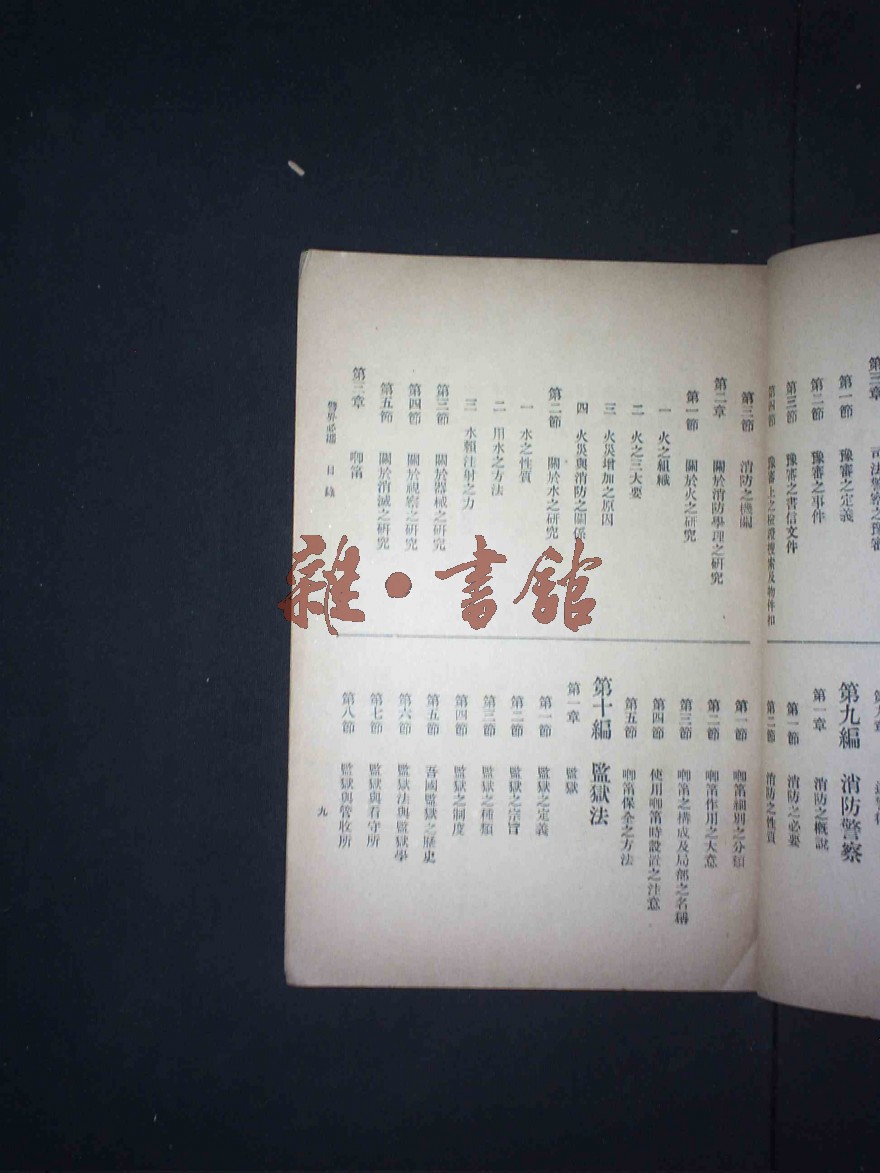 第一節 豫審之定義
第二節 豫審之事件
第三節 豫審之書信文件
第九編 消防警察
第一章 消防之概說
第一節 消防之必要
第二節 消防之性質
第三節 消防之機關
第二章 關於消防學理之研究
第一節 關於火之研究
一 火之組織
二 火之三大要
三 火災增加之原因
四 火災與消防之關係
第二節 關於水之研究
一 水之性質
二 用水之方法
三 水類注射之力
第三節 關於器械之研究
第四節 關於視察之研究
第五節 關於消滅之研究
第三章 喞筩
第一節 喞筩種別之分類
第二節 喞筩作用之大意
第三節 喞筩之構成及局部之名稱
第四節 使用喞筩時設置之注意
第五節 喞筩保全之方法
第十編 監獄法
第一章 監獄
第一節 監獄之定義
第二節 監獄之宗旨
第三節 監獄之種類
第四節 監獄之制度
第五節 吾國監獄之歷史
第六節 監獄法與監獄學
第七節 監獄與看守所
第八節 監獄與管收所
警界必攜 目錄
九
雜·書館